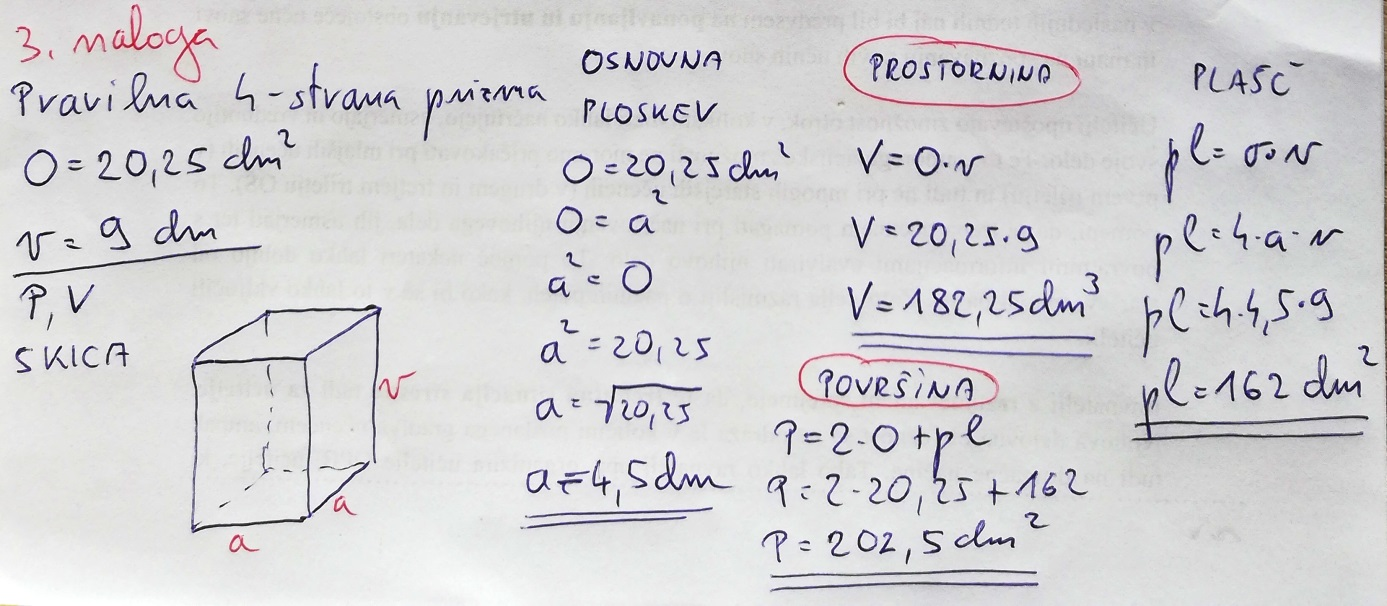 3. naloga
Pravilna 4-strana prizma
O = 20,25 dm²
v = 9 dm
P, V
SKICA
v
a
a
OSNOVNA
PLOSKEV
O = 20,25 dm²
O = a²
a² = O
a² = 20,25
a = √20,25
a = 4,5 dm
PROSTORNINA
V = O·v
V = 20,25·9
V = 182,25 dm³
POVRŠINA
P = 2·O + pl
P = 2·20,25 + 162
P = 202,5 dm²
PLAŠČ
pl = o·v
pl = 4·a·v
pl = 4·4,5·9
pl = 162 dm²